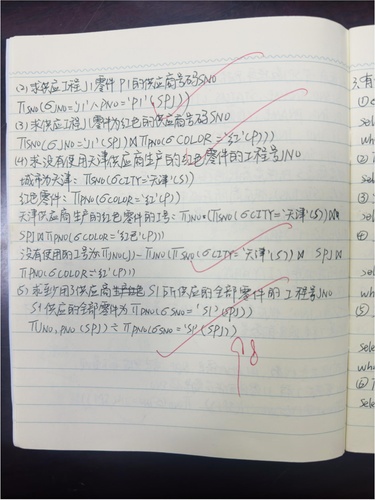 (2) 求供应工程J1零件P1的供应商号码SNO
πSNO(σJNO='J1'∧PNO='P1'(SPJ))
(3) 求供应工程J1零件为红色的供应商号码SNO
πSNO(σJNO='J1'(SPJ)⋈πPNO(σCOLOR='红'(P)))
(4) 求没有使用天津供应商生产的红色零件的工程号JNO
城市为天津: πSNO(σCITY='天津'(S))
红色零件: πPNO(σCOLOR='红'(P))
天津供应商生产的红色零件的工号: πJNO(πSNO(σCITY='天津'(S))⋈
SPJ⋈πPNO(σCOLOR='红色'(P)))
没有使用的工号为πJNO(J)-πJNO(πSNO(σCITY='天津'(S))⋈ SPJ⋈
πPNO(σCOLOR='红'(P)))
5) 求至少用了供应商S1所供应的全部零件的工程号JNO
S1供应的全部零件为πPNO(σSNO='S1'(SPJ))
πJNO,PNO(SPJ)÷πPNO(σSNO='S1'(SPJ))
98